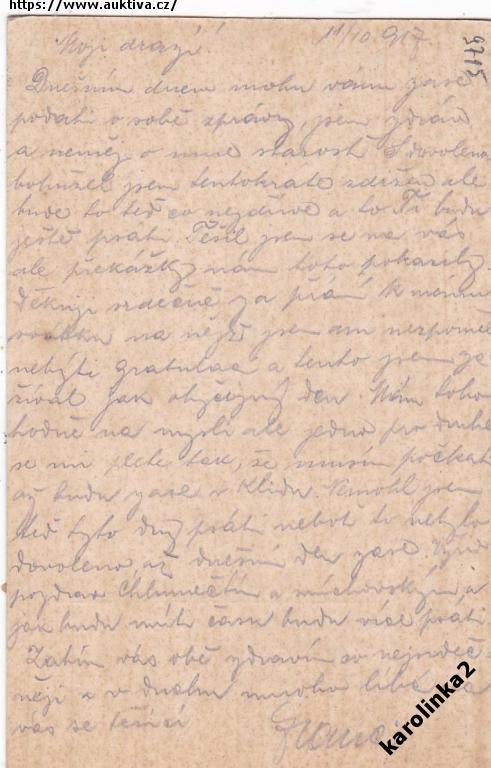 https://www.auktiva.cz/
Moji drazí!
11/10. 917.
9715
Dnešním dnem mohu vám zase
podati o sobě zprávy, jsem zdráv
a neměj o mne starosti. S dovolenou
bohužel jsem tentokráte zdržen ale
bude to teď co nejdříve a to Ti budu
ještě psáti. Těšil jsem se na vás
ale překážky nám toto pokazily.
Děkuji srdečně za přání k mému
svátku na nějž jsem ani nezpoměl
nebýti gratulace a tento jsem
jak obyčejný den. Mám toho
hodně na mysli ale jedno pro druhé
se mi plete tak, že musím počkati
až budu zase v klidu. Nemohl jsem
teď tyto dny psáti neboť to nebylo
dovoleno až dnešní den zase.
pozdrav a
jak budu míti času budu více psáti.
Zatím vás obě zdravím co nejsrdeč-
něji a v duchu mnoho líbá a
vás se těšící
karolinka2